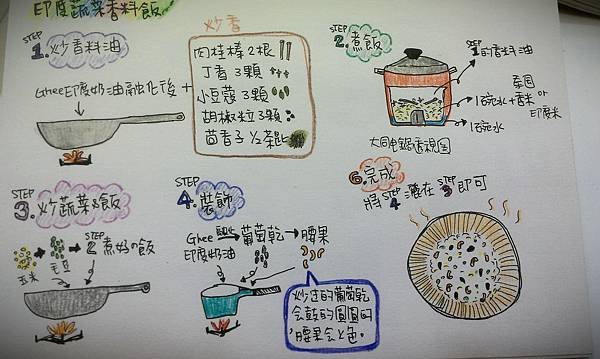 印度蔬菜香料飯
STEP
1.炒香料油
Ghee印度奶油融化後+
炒香
肉桂棒2根
丁香3顆
小豆蔻3顆
胡椒粒3顆
茴香子 1/2茶匙
STEP
2.煮飯
STEP
1的香料油
泰國
1杯水+香米or
印度米
1杯水
大同电鍋透視図
STEP
3.炒蔬菜&飯
玉米
毛豆
STEP
2煮好の飯
STEP
4.裝飾
Ghee融化→葡萄乾→腰果
印度奶油
炒过的葡萄乾
会鼓的圓圓的
腰果会上色。
6.完成
將STEP4灑在STEP3即可